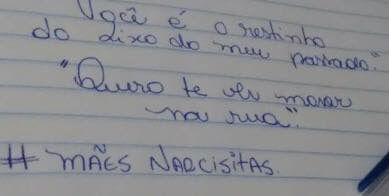 Você é o restinho
do lixo do meu passado."
"Quero te ver morar
na rua".
# MÃES NARCISITAS.